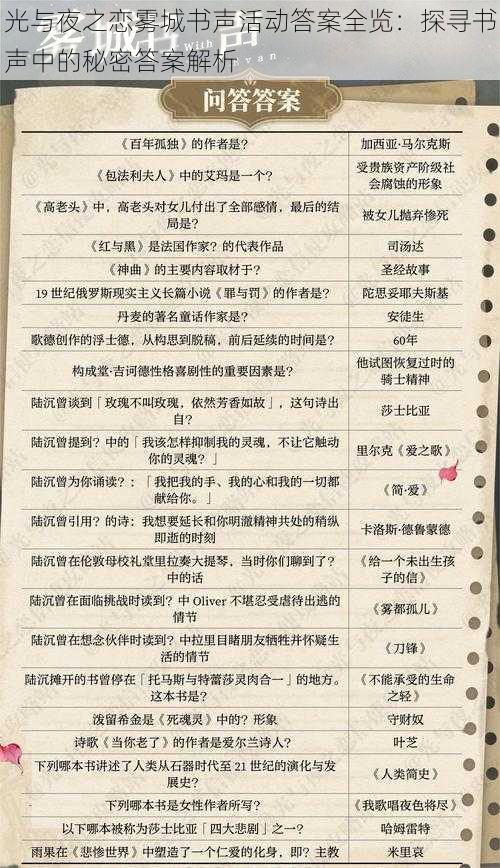 光与夜之恋雾城书声活动答案全览：探寻书
声中的秘密答案解析
问答答案
《百年孤独》的作者是？ 加西亚·马尔克斯
《包法利夫人》中的艾玛是一个？ 受贵族资产阶级社
会腐蚀的形象
《高老头》中，高老头对女儿付出了全部感情，最后的结
局是？ 被女儿抛弃惨死
《红与黑》是法国作家？的代表作品 司汤达
《神曲》的主要内容取材于？ 圣经故事
19 世纪俄罗斯现实主义长篇小说《罪与罚》的作者是？ 陀思妥耶夫斯基
丹麦的著名童话作家是？ 安徒生
歌德创作的浮士德，从构思到脱稿，前后延续的时间是？ 60年
构成堂·吉诃德性格喜剧性的重要因素是？ 他试图恢复过时的
骑士精神
陆沉曾谈到「玫瑰不叫玫瑰，依然芳香如故」，这句诗出
自？ 莎士比亚
陆沉曾提到？中的「我该怎样抑制我的灵魂，不让它触动
你的灵魂？」 里尔克《爱之歌》
陆沉曾为你诵读？：「我把我的手、我的心和我的一切都
献给你。」 《简·爱》
陆沉曾引用？的诗：我想要延长和你明澈精神共处的稍纵
即逝的时刻 卡洛斯·德鲁蒙德
陆沉曾在伦敦母校礼堂里拉奏大提琴，当时你们聊到了？
中的话 《给一个未出生孩
子的信》
陆沉曾在面临挑战时读到？中 Oliver 不堪忍受虐待出逃的
情节 《雾都孤儿》
陆沉曾在想念伙伴时读到？中拉里目睹朋友牺牲并怀疑生
活的情节 《刀锋》
陆沉摊开的书曾停在「托马斯与特蕾莎灵肉合一」的地方。
这本书是？ 《不能承受的生命
之轻》
泼留希金是《死魂灵》中的？形象 守财奴
诗歌《当你老了》的作者是爱尔兰诗人？ 叶芝
下列哪本书讲述了人类从石器时代至 21 世纪的演化与发
展史？ 《人类简史》
下列哪本书是女性作者所写？ 《我歌唱夜色将尽》
以下哪本被称为莎士比亚「四大悲剧」之一？ 哈姆雷特
雨果在《悲惨世界》中塑造了一个仁爱的化身，即？主教 米里哀